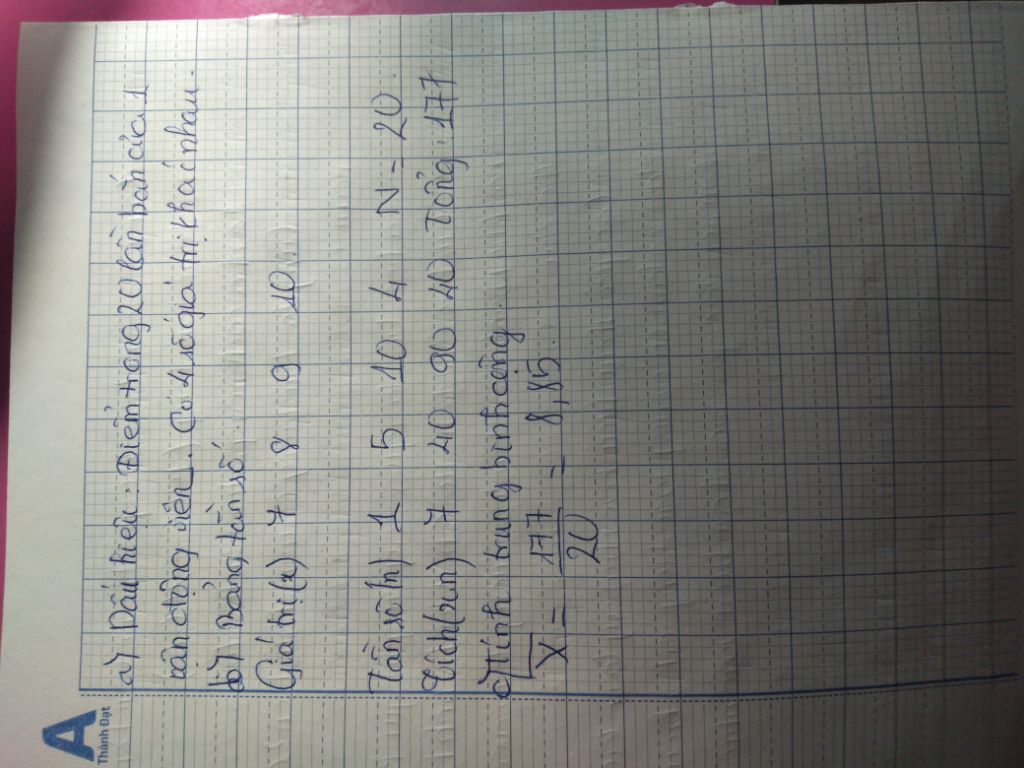 A
Thành Đạt
a) Dấu hiệu: Điểm trong 20 lần bắn của 1
vận động viên. Có 4 số giá trị khác nhau.
b) Bảng tần số.
Giá trị (x) 7 8 9 10
Tần số (n) 1 5 10 4 N = 20
Tích (x.n) 7 40 90 40 Tổng: 177
c) Tính trung bình cộng
X = 177/20 = 8,85